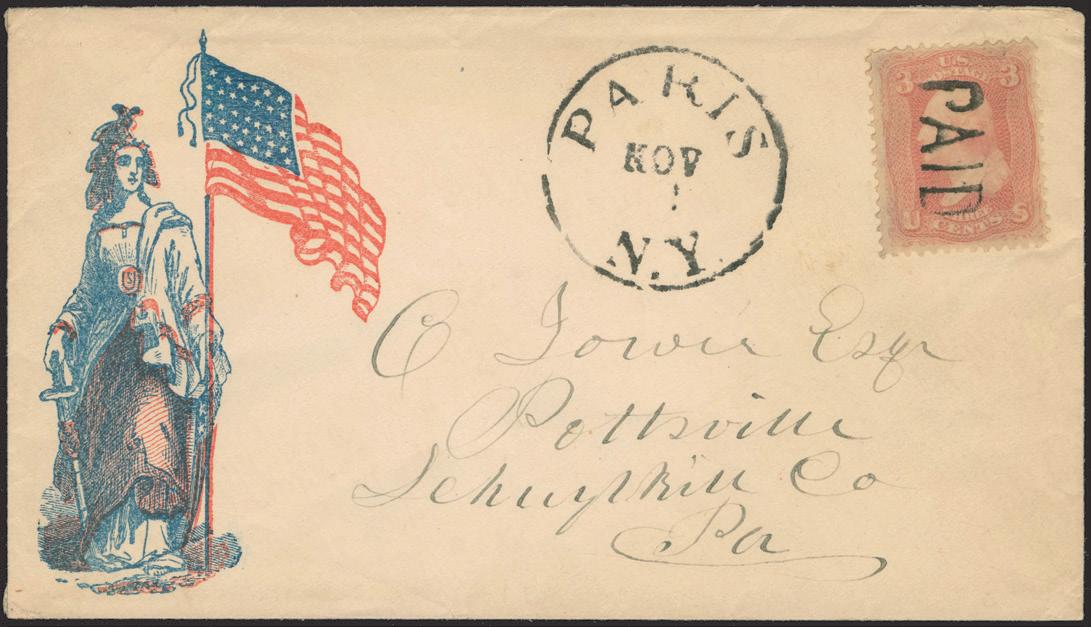 PARIS
NOV
1
N.Y.
3 U.S. POSTAGE 3
U THREE CENTS S
PAID
US
C Towie Esqr
Pottsville
Schuylkill Co
Pa